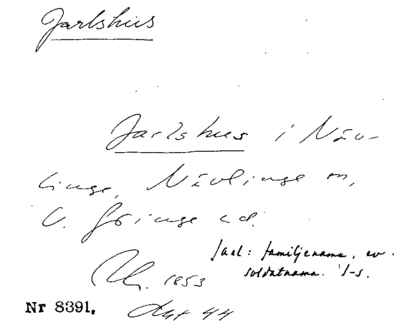 Jarlshus
Jarlshus i Näv-
linge, Nävlinge sn,
V. Göinge hd.
Jarl: familjenamn, ev.
soldatnamn.
1853
Nr 8391.